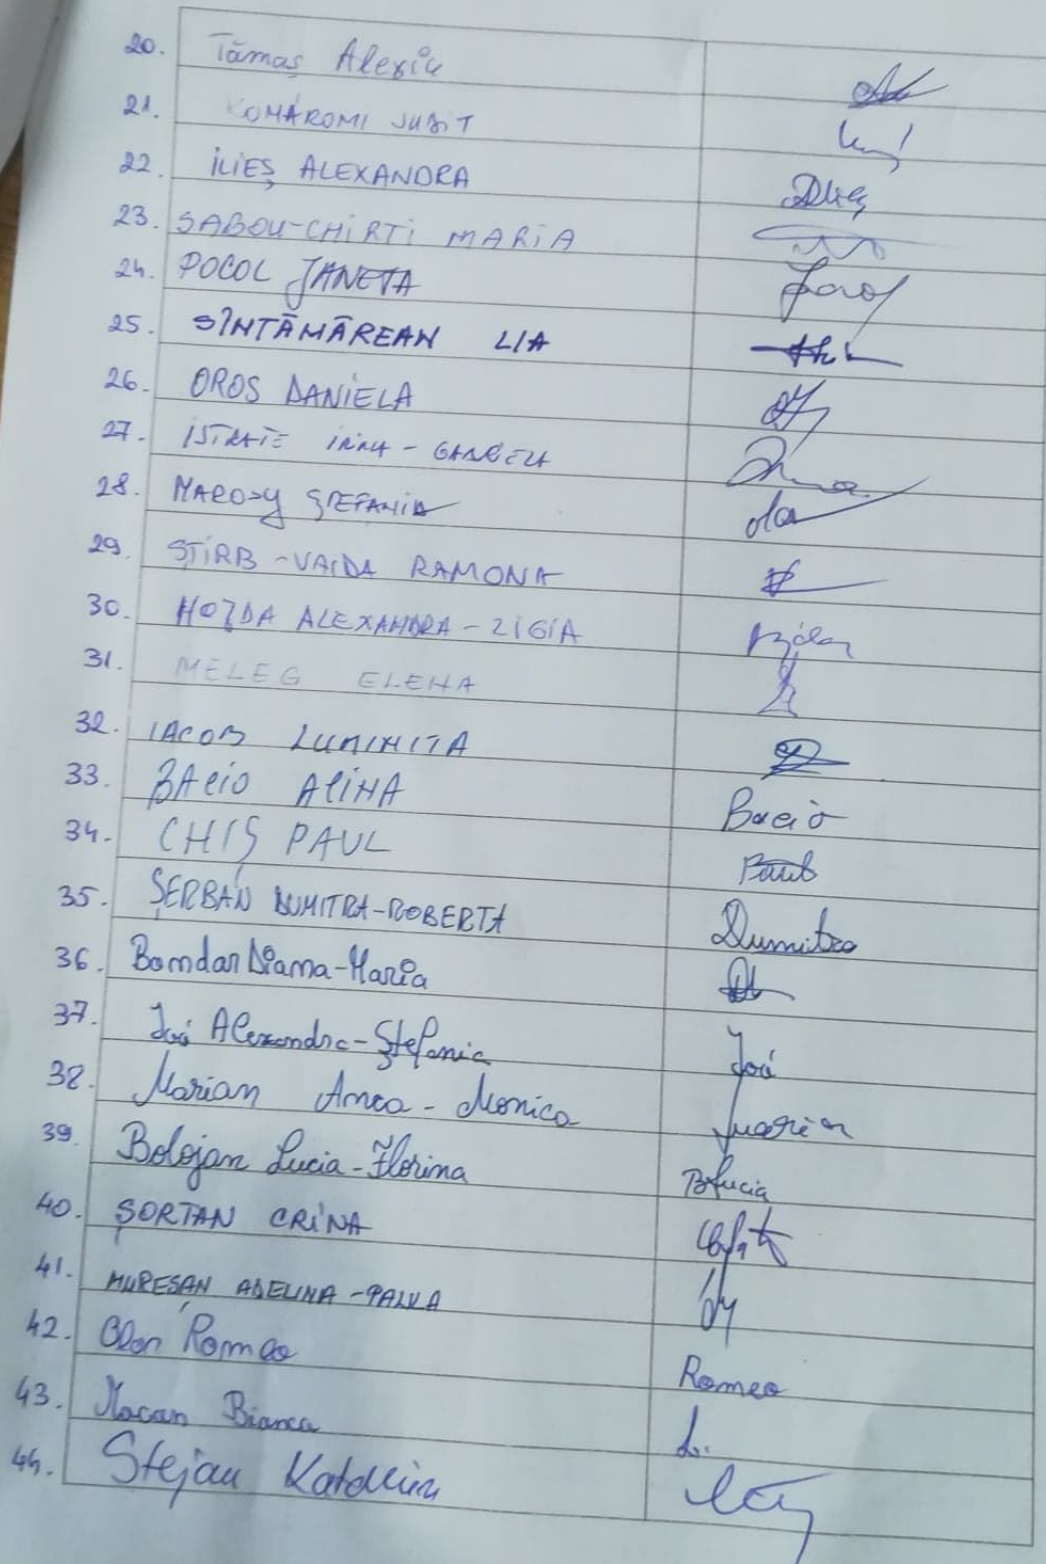 20. Tămaș Alexia
21. KOMÁROMI JUDIT
22. ILIEȘ ALEXANDRA
23. SABOU-CHIRTI MARIA
24. POCOL JANETA
25. SÎNTĂMĂREAN LIA
26. OROS DANIELA
27. ISTRATE IRINA-GABRIELA
28. MAROZY ȘTEFANIA
29. ȘTIRB-VAIDA RAMONA
30. HOZDA ALEXANDRA-LIGIA
31. MELEG ELENA
32. IACOB LUMINITA
33. BACIO ALINA Bacio
34. CHIȘ PAUL Paul
35. ȘERBAN DUMITRA-ROBERTA Dumitra
36. Bondar Diana-Maria
37. Joó Alexandra-Ștefania Joó
38. Marian Anca-Monica Marian
39. Bolojan Lucia-Florina BLucia
40. ȘORTAN CRINA
41. MUREȘAN ADELINA-
42. Romeo Romeo
43. Macan Bianca
44. Stejau Katalin